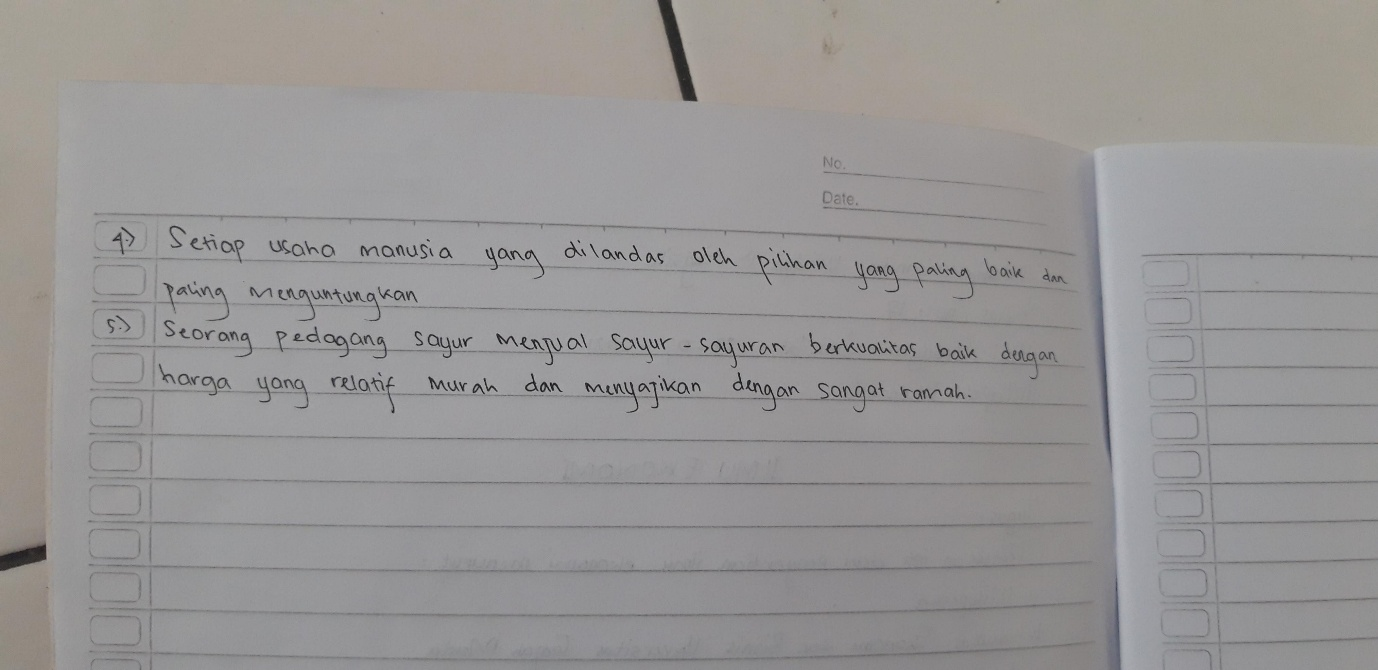 No.
Date.
4.) Setiap usaha manusia yang dilandas oleh pilihan yang paling baik dan
paling menguntungkan
5.) Seorang pedagang sayur menjual sayur-sayuran berkualitas baik dengan
harga yang relatif murah dan menyajikan dengan sangat ramah.